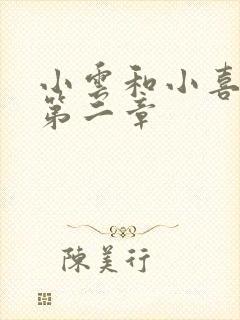 小雲和小喜
第二章
陳美行